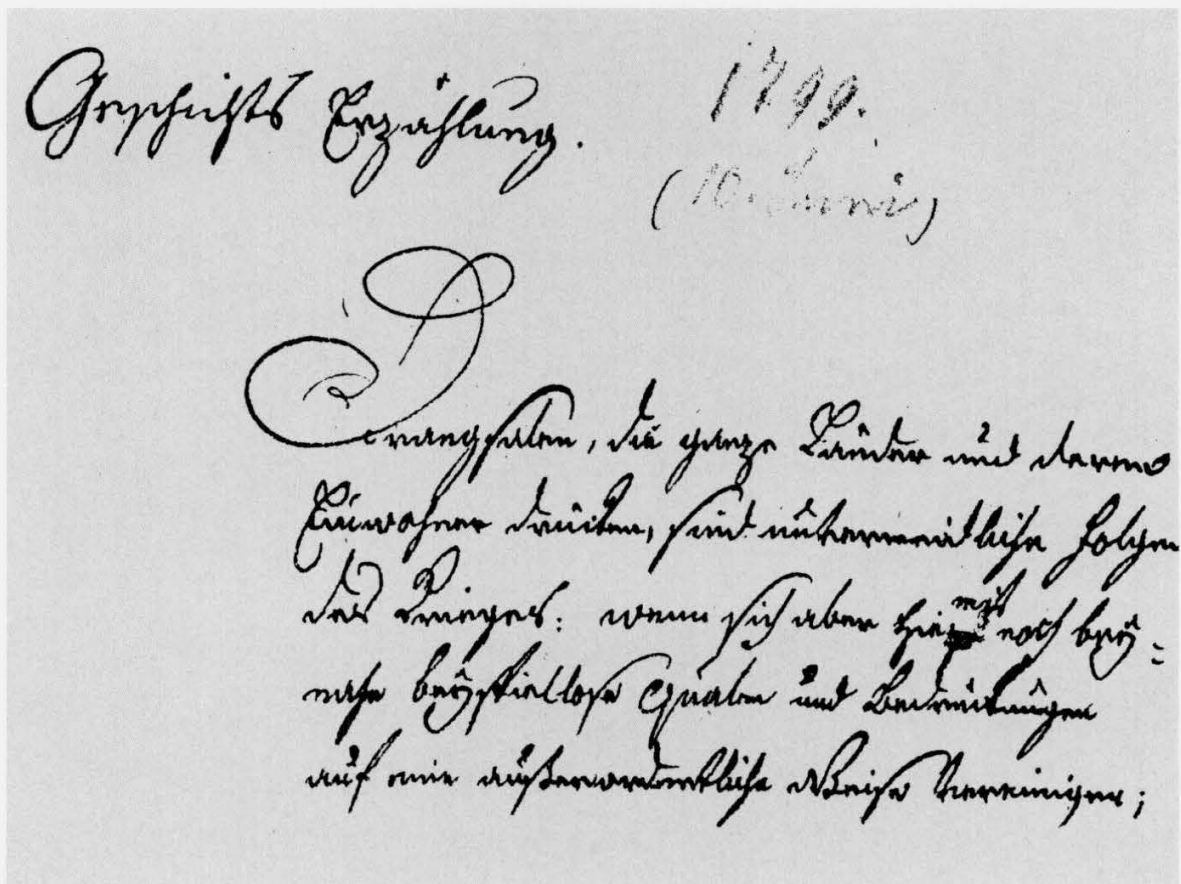 Geschichts Erzählung.
1799.
(10. Juni)
Drangsalen, die ganze Länder und deren
Einwohner drücken, sind unvermeidliche Folgen
des Krieges: wenn sich aber hiemit noch bey=
nahe beyspiellose Qualen und Bedrückungen
auf eine außerordentliche Weise Vereinigen;